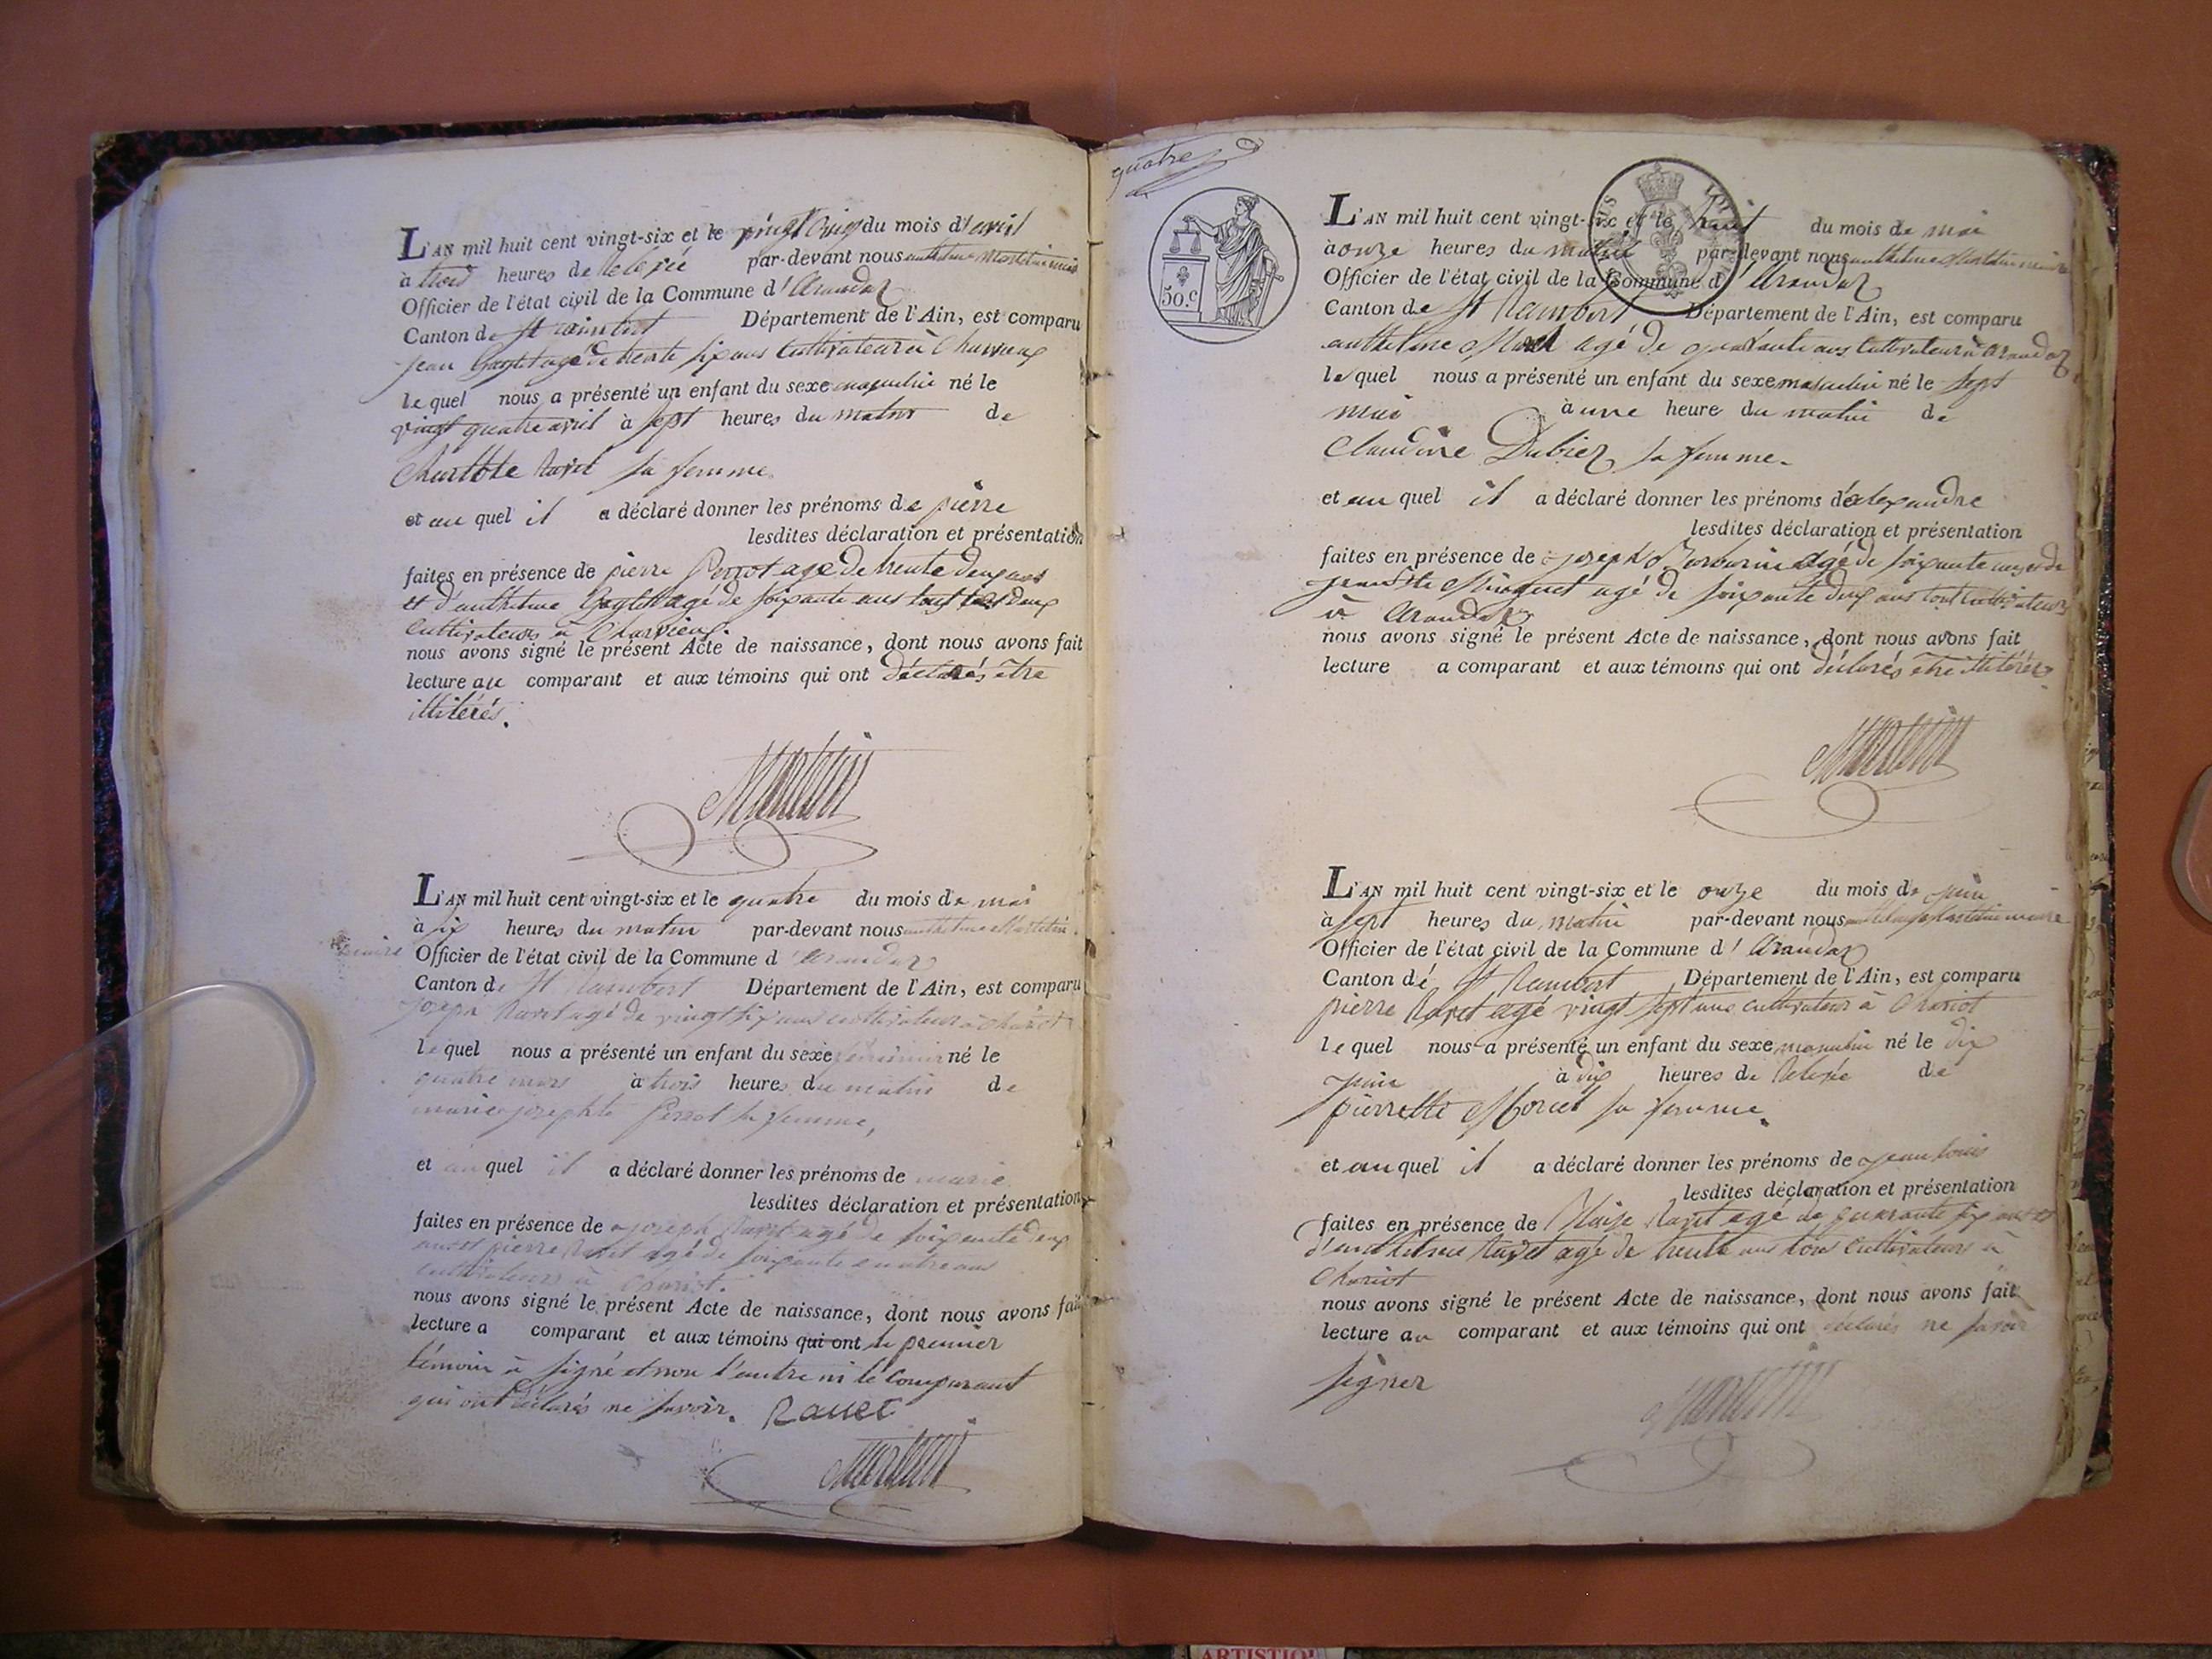 L'AN mil huit cent vingt-six et le vingt cinq du mois d'avril
à trois heures de Relevée par-devant nous anthelme Martin maire
Officier de l'état civil de la Commune d'Arandaz
Canton de St rambert Département de l'Ain, est comparu
jean agé de trente six ans Cultivateur à Charvieux
le quel nous a présenté un enfant du sexe masculin né le
vingt quatre avril à sept heures du matin de
Charlotte Ravet sa femme
et au quel il a déclaré donner les prénoms de pierre
lesdites déclaration et présentation
faites en présence de pierre Perrot agé de trente deux ans
et d'anthelme agé de soixante ans tous les deux
Cultivateurs à Charvieux.
nous avons signé le présent Acte de naissance, dont nous avons fait
lecture au comparant et aux témoins qui ont déclarés être
illitérés.
Martin
L'AN mil huit cent vingt-six et le quatre du mois de mai
à six heures du matin par-devant nous anthelme Martin
maire Officier de l'état civil de la Commune d'Arandaz
Canton de St Rambert Département de l'Ain, est comparu
joseph Ravet agé de vingt six ans cultivateur à Chariot
le quel nous a présenté un enfant du sexe féminin né le
quatre mars à trois heures du matin de
marie josephte Perrot sa femme,
et au quel il a déclaré donner les prénoms de marie
lesdites déclaration et présentation
faites en présence de joseph Ravet agé de soixante deux
ans et pierre Ravet agé de soixante quatre ans
cultivateurs à Chariot.
nous avons signé le présent Acte de naissance, dont nous avons fait
lecture a comparant et aux témoins qui ont le premier
témoin à signé et non l'autre ni le Comparant
qui ont déclarés ne savoir. Rauet
Martin
quatre
50.c
L'AN mil huit cent vingt-six et le huit du mois de mai
à onze heures du matin par-devant nous anthelme Martin maire
Officier de l'état civil de la Commune d'Arandaz
Canton de St Rambert Département de l'Ain, est comparu
anthelme agé de quarante ans Cultivateur à Arandaz
le quel nous a présenté un enfant du sexe masculin né le sept
mai à une heure du matin de
Claudine Dubiez sa femme.
et au quel il a déclaré donner les prénoms d'alexandre
lesdites déclaration et présentation
faites en présence de joseph agé de soixante ans et de
jean Bte agé de soixante deux ans tous cultivateurs
à Arandaz
nous avons signé le présent Acte de naissance, dont nous avons fait
lecture a comparant et aux témoins qui ont déclarés être illitérés
Martin
L'AN mil huit cent vingt-six et le onze du mois de juin
à sept heures du matin par-devant nous anthelme Martin maire
Officier de l'état civil de la Commune d'Arandaz
Canton dé St Rambert Département de l'Ain, est comparu
pierre Ravet agé vingt sept ans cultivateur à Chariot
le quel nous a présenté un enfant du sexe masculin né le dix
juin à dix heures de Relevée de
pierrette Morcel sa femme.
et au quel il a déclaré donner les prénoms de jean louis
lesdites déclaration et présentation
faites en présence de Blaise Ravet agé de quarante six ans et
d'anthelme Ravet agé de trente ans tous Cultivateurs à
Chariot
nous avons signé le présent Acte de naissance, dont nous avons fait
lecture au comparant et aux témoins qui ont déclarés ne savoir
signer
Martin
ARTISTIQ